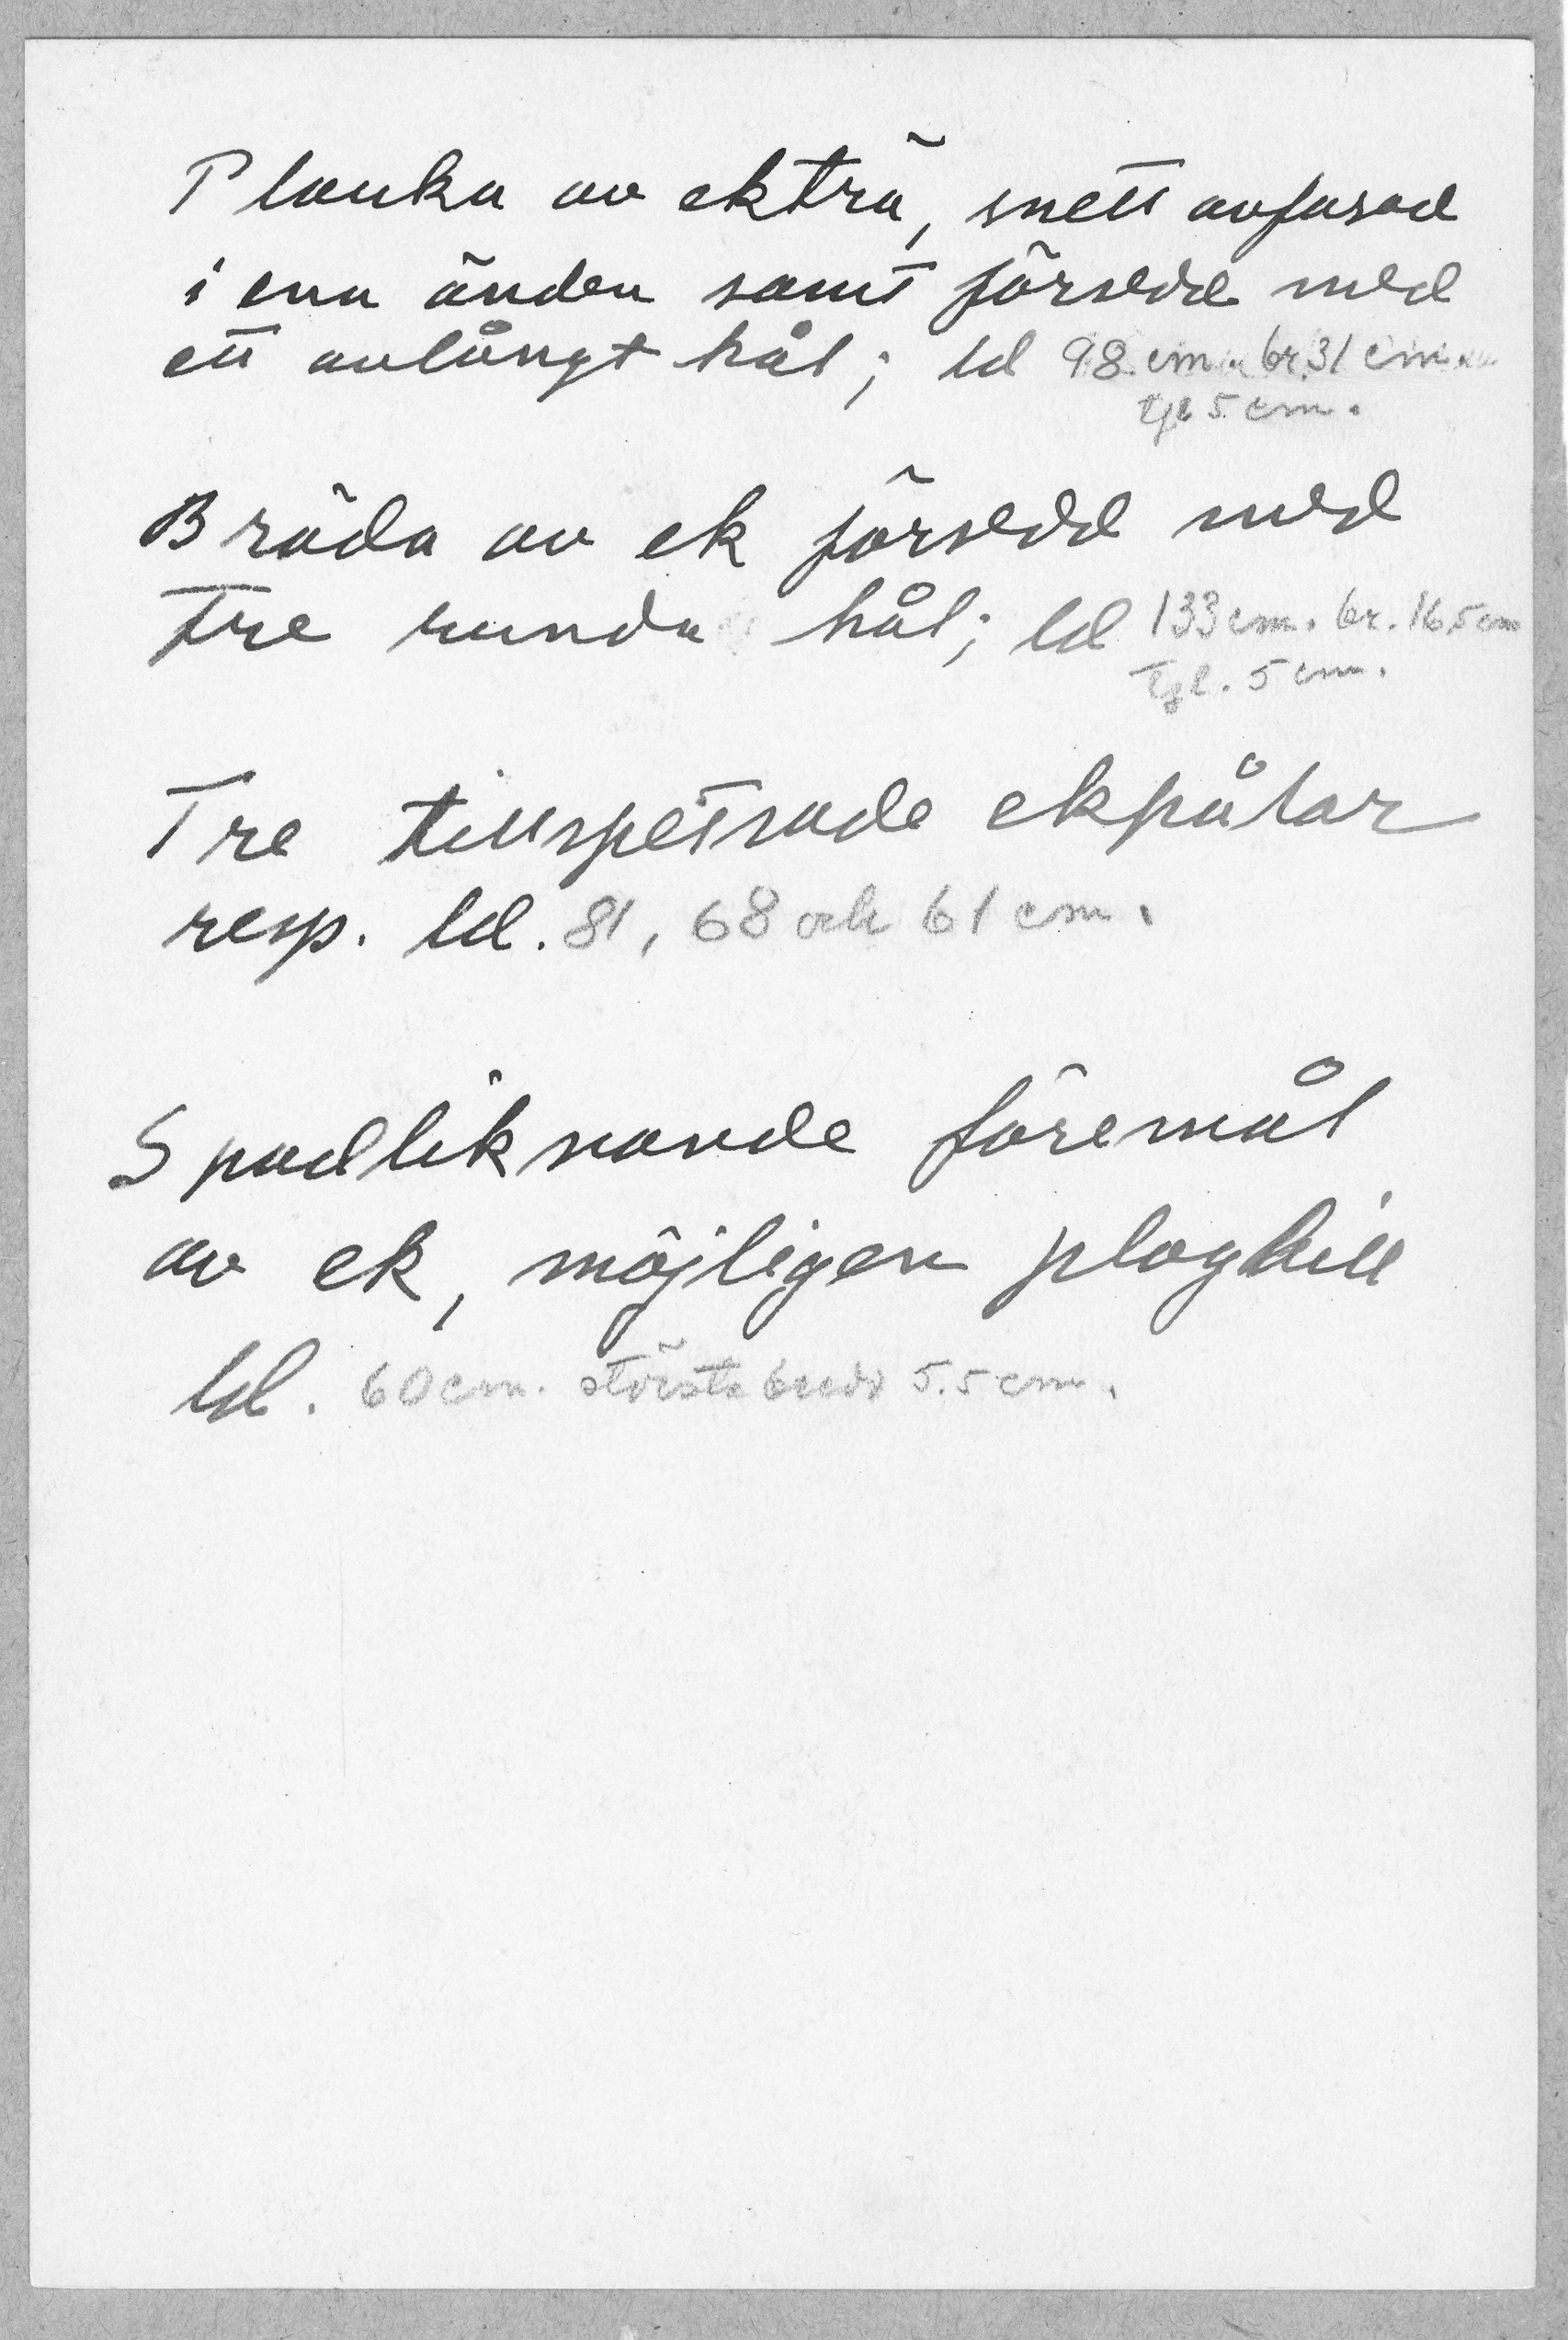 Planka av ekträ, snett avfasad
i ena änden samt försedd med
ett avlångt hål; ld 98 cm br. 31 cm
tjl 5 cm.
Bräda av ek försedd med
tre runda hål; ld 133 cm. br. 16,5 cm
tjl. 5 cm.
Tre tillspetsade ekpålar
resp. ld. 81, 68 och 61 cm.
Spadliknande föremål
av ek, möjligen plogbill
ld. 60 cm. största bredd 5.5 cm.